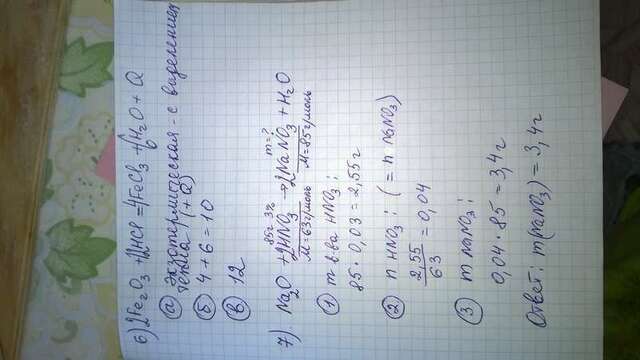 6) 2Fe₂O₃ + 12HCl = 4FeCl₃ + 6H₂O + Q
а) экзотермическая - с выделением
тепла! (+Q)
б) 4 + 6 = 10
в) 12
85г 3% m=?
7) Na₂O + 2HNO₃ → 2NaNO₃ + H₂O
M=63г/моль M=85г/моль
① m в-ва HNO₃:
85 · 0,03 = 2,55г
② n HNO₃: (= n NaNO₃)
2,55/63 = 0,04
③ m NaNO₃:
0,04 · 85 = 3,4г
Ответ: m(NaNO₃) = 3,4г